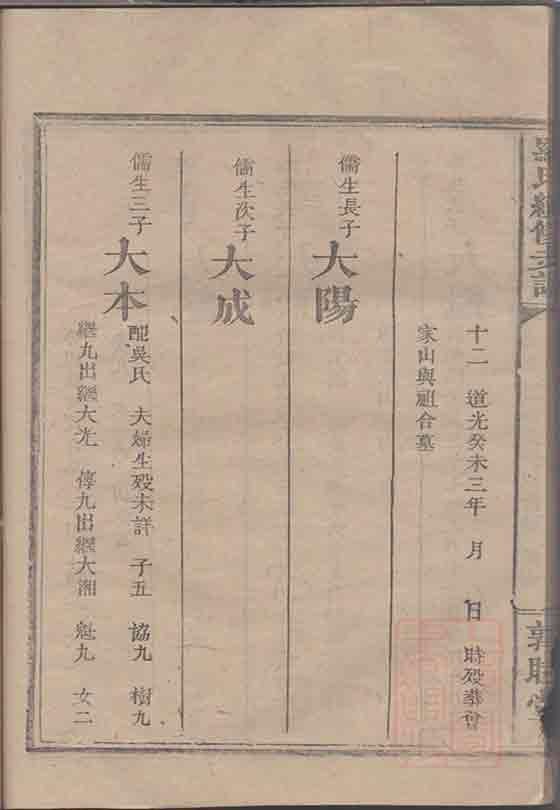 氏續修支譜
十二 道光癸未三年 月 日 時歿葬
家山與祖合墓
儒生長子 大陽
儒生次子 大成
儒生三子 大本
配吳氏 夫婦生歿未詳 子五 協九 樹九
繼九出繼大光 傳九出繼大湘 魁九 女二